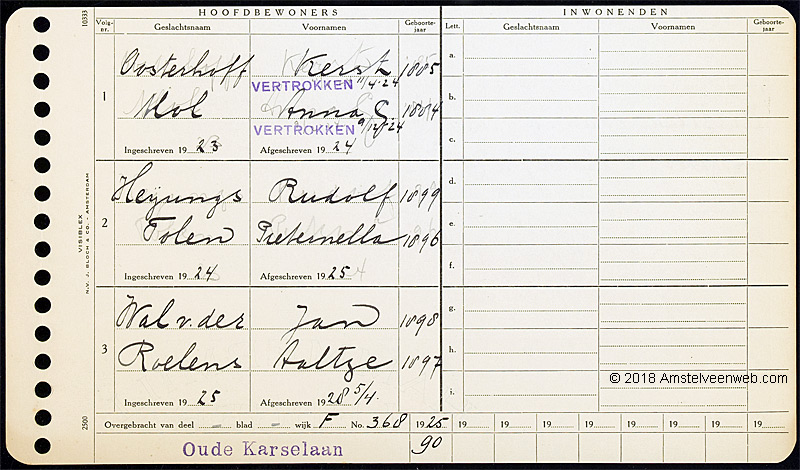 HOOFDBEWONERS INWONENDEN
Volg-nr. Geslachtsnaam Voornamen Geboorte-jaar Lett. Geslachtsnaam Voornamen Geboorte-jaar
10333
1
Oosterhoff Kerst 1885
VERTROKKEN 11/4-24
Mol Anna C. 1884
VERTROKKEN 9/12-24
Ingeschreven 1923 Afgeschreven 1924
a.
b.
c.
2
Heyungs Rudolf 1899
Tolen Pieternella 1896
Ingeschreven 1924 Afgeschreven 1925
d.
e.
f.
VISIBLEX
N.V. J. BLOCH & CO. - AMSTERDAM
3
Wal v. der Jan 1898
Roelens Aaltze 1897
Ingeschreven 1925 Afgeschreven 1928 5/4.
g.
h.
i.
© 2018 Amstelveenweb.com
2500
Overgebracht van deel - blad - wijk F No. 368 1925 19 19 19 19 19 19 19 19
Oude Karselaan 90